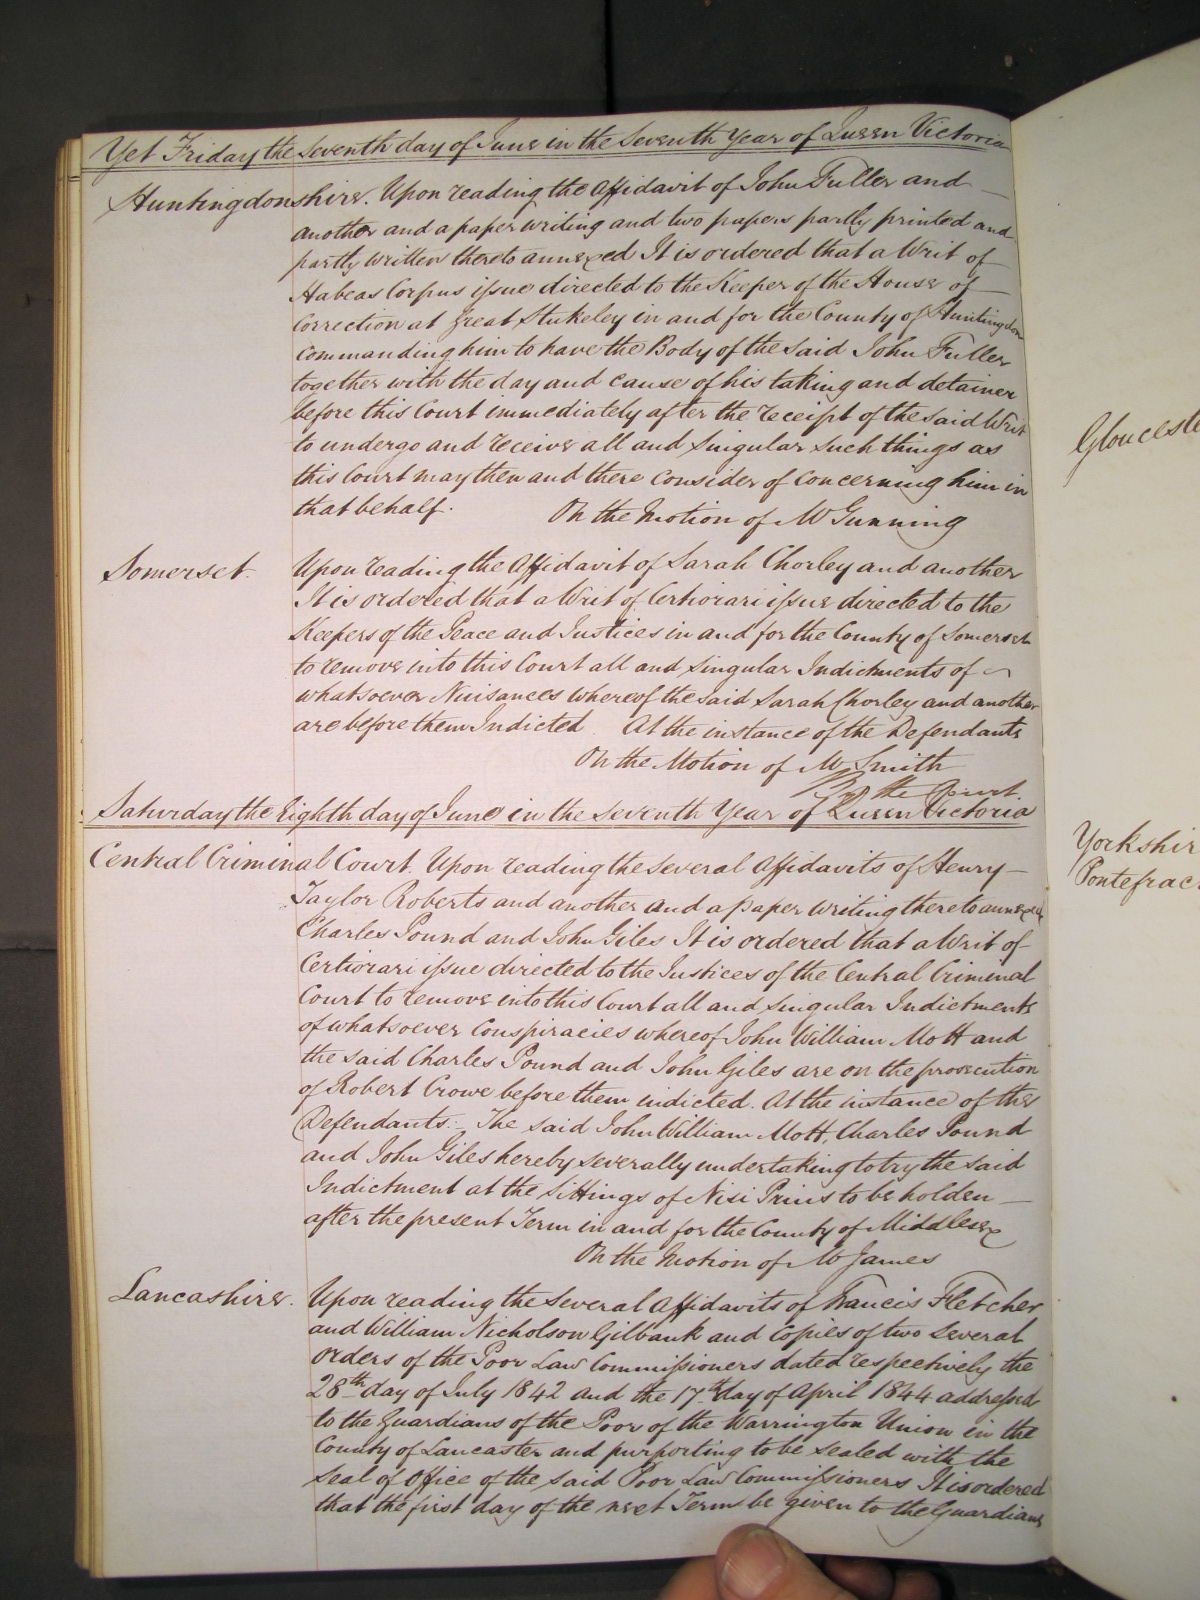 Yet Friday the Seventh day of June in the Seventh Year of Queen Victoria
Huntingdonshire. Upon reading the Affidavit of John Fuller and
another and a paper writing and two papers partly printed and
partly written thereto annexed It is ordered that a Writ of
Habeas Corpus issue directed to the Keeper of the House of
Correction at Great Stukeley in and for the County of Huntingdon
Commanding him to have the Body of the said John Fuller
together with the day and cause of his taking and detainer
before this Court immediately after the receipt of the said Writ
to undergo and receive all and singular such things as
this Court may then and there consider of concerning him in
that behalf.
On the Motion of Mr Gunning
Somerset. Upon reading the Affidavit of Sarah Chorley and another
It is ordered that a Writ of Certiorari issue directed to the
Keepers of the Peace and Justices in and for the County of Somerset
to remove into this Court all and singular Indictments of
whatsoever Nuisances whereof the said Sarah Chorley and another
are before them Indicted At the instance of the Defendants
On the Motion of Mr Smith
By the Court
Saturday the Eighth day of June in the Seventh Year of Queen Victoria
Central Criminal Court. Upon reading the several Affidavits of Henry
Taylor Roberts and another and a paper writing thereto annexed
Charles Pound and John Giles It is ordered that a Writ of
Certiorari issue directed to the Justices of the Central Criminal
Court to remove into this Court all and singular Indictments
of whatsoever Conspiracies whereof John William Mott and
the said Charles Pound and John Giles are on the prosecution
of Robert Crowe before them indicted. At the instance of the
Defendants. The said John William Mott, Charles Pound
and John Giles hereby severally undertaking to try the said
Indictment at the Sittings of Nisi Prius to be holden
after the present Term in and for the County of Middlesex
On the Motion of Mr James
Lancashire. Upon reading the several Affidavits of Francis Fletcher
and William Nicholson Gilbank and Copies of two several
orders of the Poor Law Commissioners dated respectively the
28th day of July 1842 and the 17th day of April 1844 addressed
to the Guardians of the Poor of the Warrington Union in the
County of Lancaster and purporting to be sealed with the
Seal of Office of the said Poor Law Commissioners It is ordered
that the first day of the next Term be given to the Guardians
Glouceste
Yorkshir
Pontefrac